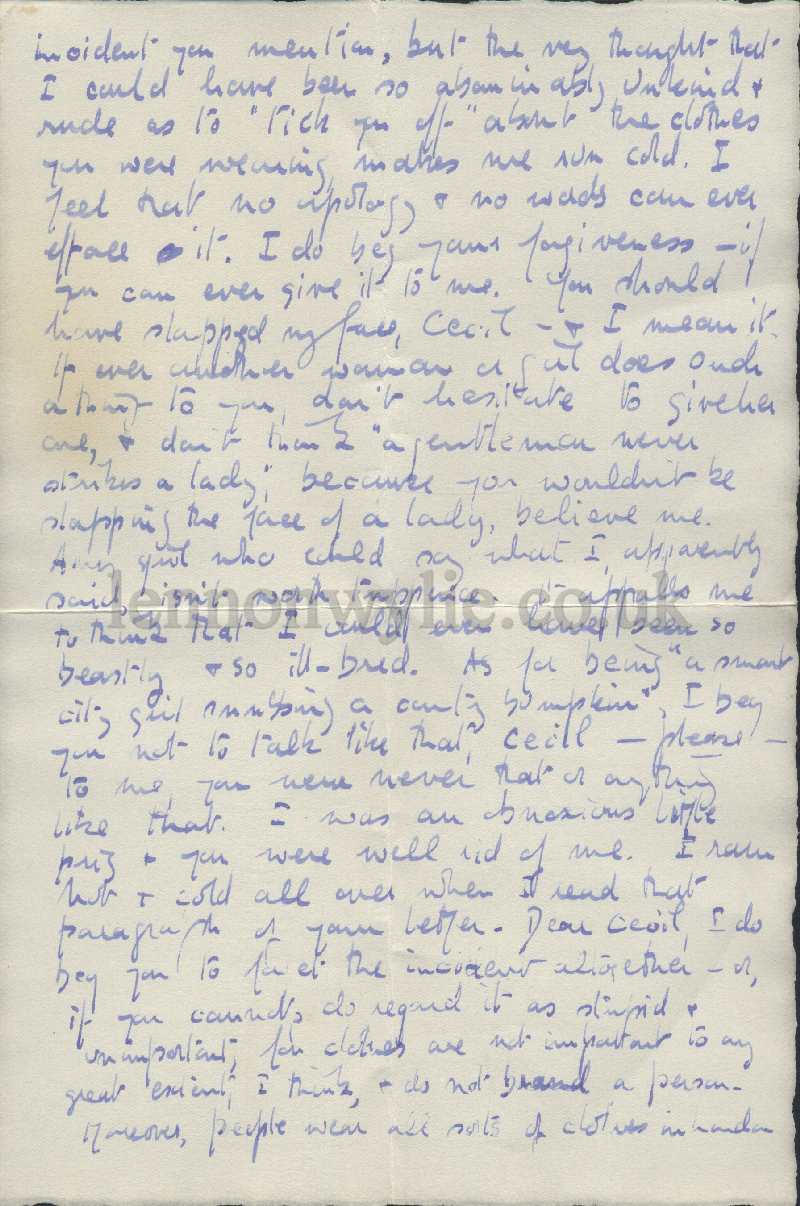 incident you mention, but the very thought that
I could have been so abominably unkind &
rude as to "tick you off" about the clothes
you were wearing, makes me run cold. I
feel that no apology & no words can ever
efface it. I do beg your forgiveness – if
you can ever give it to me. You should
have slapped my face, Cecil – & I mean it.
If ever another woman or girl does such
a thing to you, don't hesitate to give her
one, & don't think "a gentleman never
strikes a lady", because you wouldn't be
slapping the face of a lady, believe me.
Any girl who could say what I, apparently
said, isn't worth tuppence. It appalls me
to think that I could ever have been so
beastly & so ill-bred. As for being "a smart
city girl snubbing a country bumpkin", I beg
you not to talk like that, Cecil – please –
to me, you were never that or anything
like that. I was an obnoxious little
prig & you were well rid of me. I ran
hot & cold all over when I read that
paragraph of your letter. Dear Cecil, I do
beg you to forget the incident altogether – or,
if you cannot, do regard it as stupid &
unimportant, for clothes are not important to any
great extent, I think, & do not brand a person.
Moreover, people wear all sorts of clothes in London
lennonwylie.co.uk